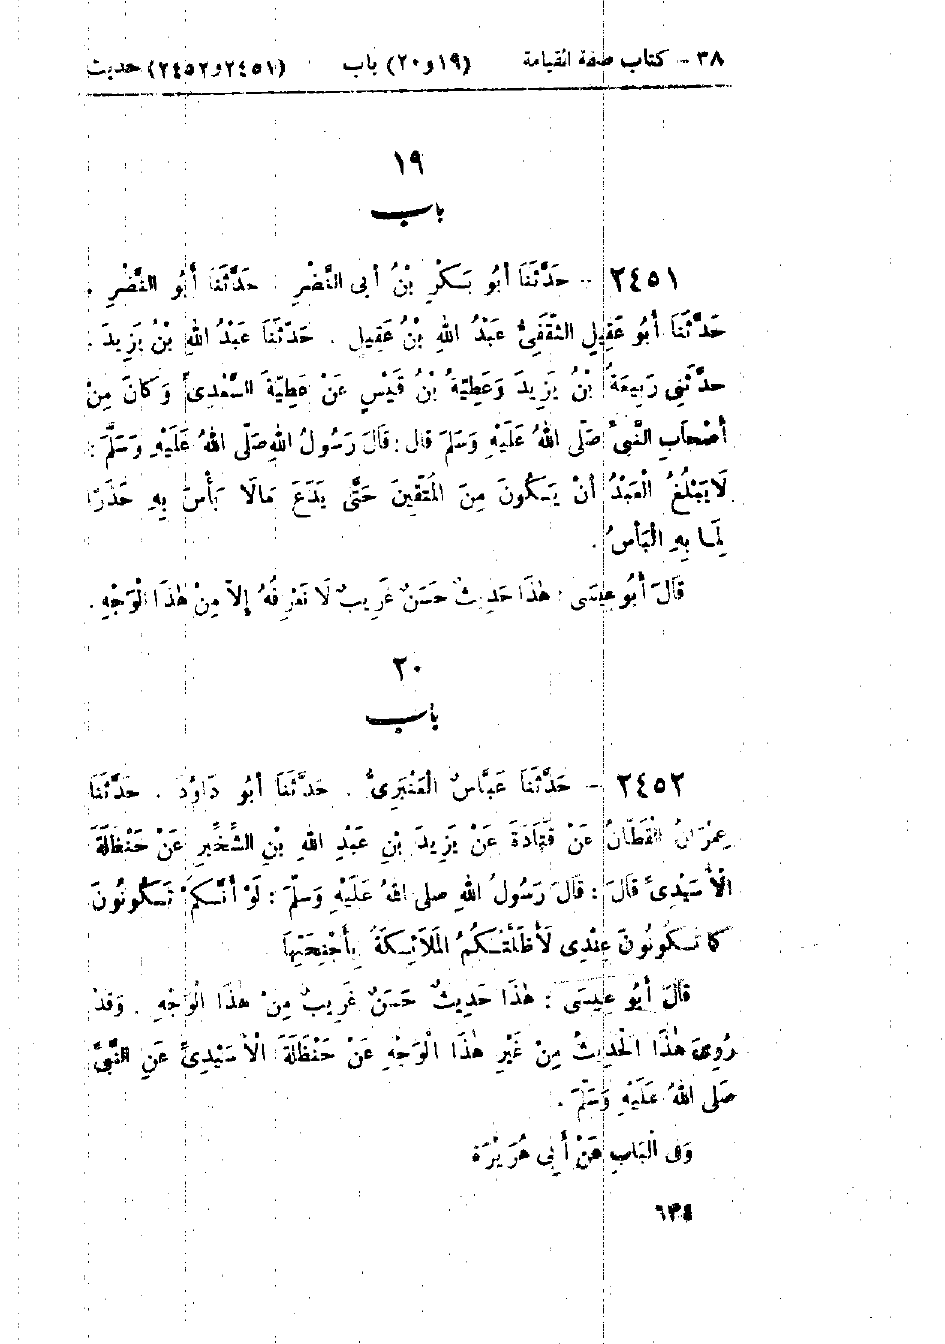 ٣٨ - كتاب صفة القيامة (١٩ و ٢٠) باب (٢٤٥١ و ٢٤٥٢) حديث
١٩
باب
٢٤٥١ - حَدَّثَنَا أَبُو بَكْرِ بْنُ أَبِى النَّضْرِ . حَدَّثَنَا أَبُو النَّضْرِ .
حَدَّثَنَا أَبُو عَقِيلٍ الثَّقَفِىُّ عَبْدُ اللهِ بْنُ عَقِيلٍ . حَدَّثَنَا عَبْدُ اللهِ بْنُ يَزِيدَ .
حدَّثَنِى رَبِيعَةُ بْنُ يَزِيدَ وَعَطِيَّةُ بْنُ قَيْسٍ عَنْ عَطِيَّةَ السَّعْدِىِّ وَكَانَ مِنْ
أَصْحَابِ النَّبِىِّ صَلَّى اللهُ عَلَيْهِ وَسَلَّمَ قال : قَالَ رَسُولُ اللهِ صَلَّى اللهُ عَلَيْهِ وَسَلَّمَ :
لَا يَبْلُغُ الْعَبْدُ أَنْ يَكُونَ مِنَ الْمُتَّقِينَ حَتَّى يَدَعَ مَالَا بَأْسَ بِهِ حَذَرًا
لِمَا بِهِ الْبَأْسُ .
قَالَ أَبُو عِيسَى : هٰذَا حَدِيثٌ حَسَنٌ غَرِيبٌ لَا نَعْرِفُهُ إِلاَّ مِنْ هٰذَا الْوَجْهِ .
٢٠
باب
٢٤٥٢ - حَدَّثَنَا عَبَّاسٌ الْعَنْبَرِىُّ . حَدَّثَنَا أَبُو دَاوُدَ . حَدَّثَنَا
عِمْرَانُ الْقَطَّانُ عَنْ قَتَادَةَ عَنْ يَزِيدَ بْنِ عَبْدِ اللهِ بْنِ الشِّخِّيرِ عَنْ حَنْظَلَةَ
الْأُسَيْدِىِّ قَالَ : قَالَ رَسُولُ اللهِ صلى اللهُ عَلَيْهِ وَسَلَّمَ : لَوْ أَنَّكُمْ تَكُونُونَ
كَمَا تَكُونُونَ عِنْدِى لَأَظَلَّتْكُمُ الْمَلَائِكَةُ بِأَجْنِحَتِهَا
قَالَ أَبُو عِيسَى : هٰذَا حَدِيثٌ حَسَنٌ غَرِيبٌ مِنْ هٰذَا الْوَجْهِ . وَقَدْ
رُوِىَ هٰذَا الْحَدِيثُ مِنْ غَيْرِ هٰذَا الْوَجْهِ عَنْ حَنْظَلَةَ الْأُسَيْدِىِّ عَنِ النَّبِىِّ
صَلَّى اللهُ عَلَيْهِ وَسَلَّمَ .
وَفِى الْبَابِ عَنْ أَبِى هُرَيْرَةَ
٦٣٤